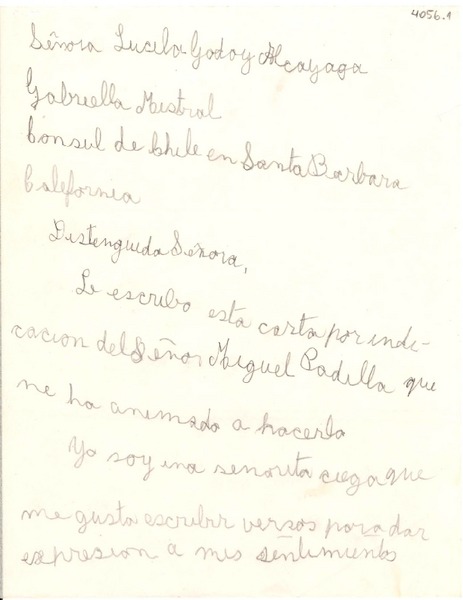 4056.1
Señora Lucila Godoy Alcayaga
Gabriella Mistral
Consul de Chile en Santa Barbara
Calefornia
Distenguida Señora,
Le escribo esta carta por indi-
cacion del Señor Miguel Padilla que
me ha animado a hacerlo
Yo soy una señorita ciega que
me gusta escribir versos para dar
expresion a mis sentimientos